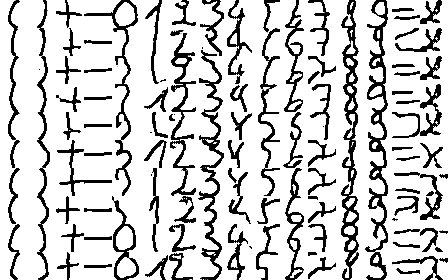 ( ) + - 0 1 2 3 4 5 6 7 8 9 = x
( ) + - 2 3 4 5 6 7 8 9 x
( ) + - 2 3 4 5 6 7 8 9 = x
( ) + - 1 2 3 4 5 6 7 8 9 = x
( ) + - 1 2 3 4 5 6 7 8 9 x
( ) + - 1 2 3 4 5 6 7 8 9 = x
( ) + - 1 2 3 4 5 6 7 8 9 x
( ) + - 2 3 4 5 6 7 8 9 x
( ) + - 0 1 2 3 4 5 6 7 8 9 = x
( ) + - 0 1 2 3 4 5 6 7 8 9 x